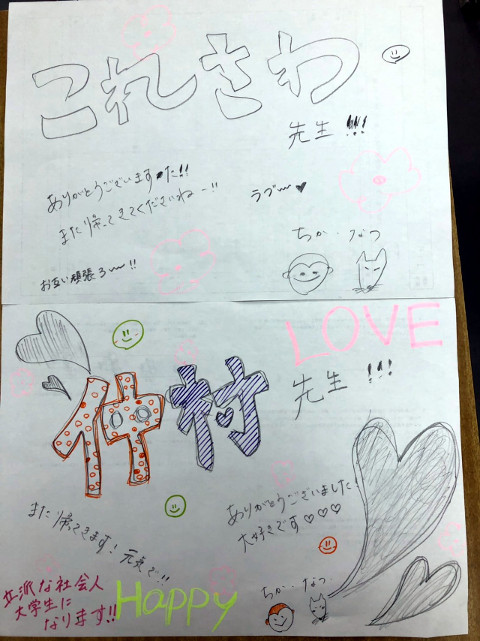 これさわ
先生!!!
ありがとうございますた!!
また帰ってきてくださいねー!!
ラブ〜♥
お互い頑張ろ〜!!
ちか・なつ
LOVE
仲村
先生!!!
ありがとうございました!
大好きです♡♡♡
また帰ってきます!元気で!!
ちか・なつ
立派な社会人
大学生に
なります!!
Happy